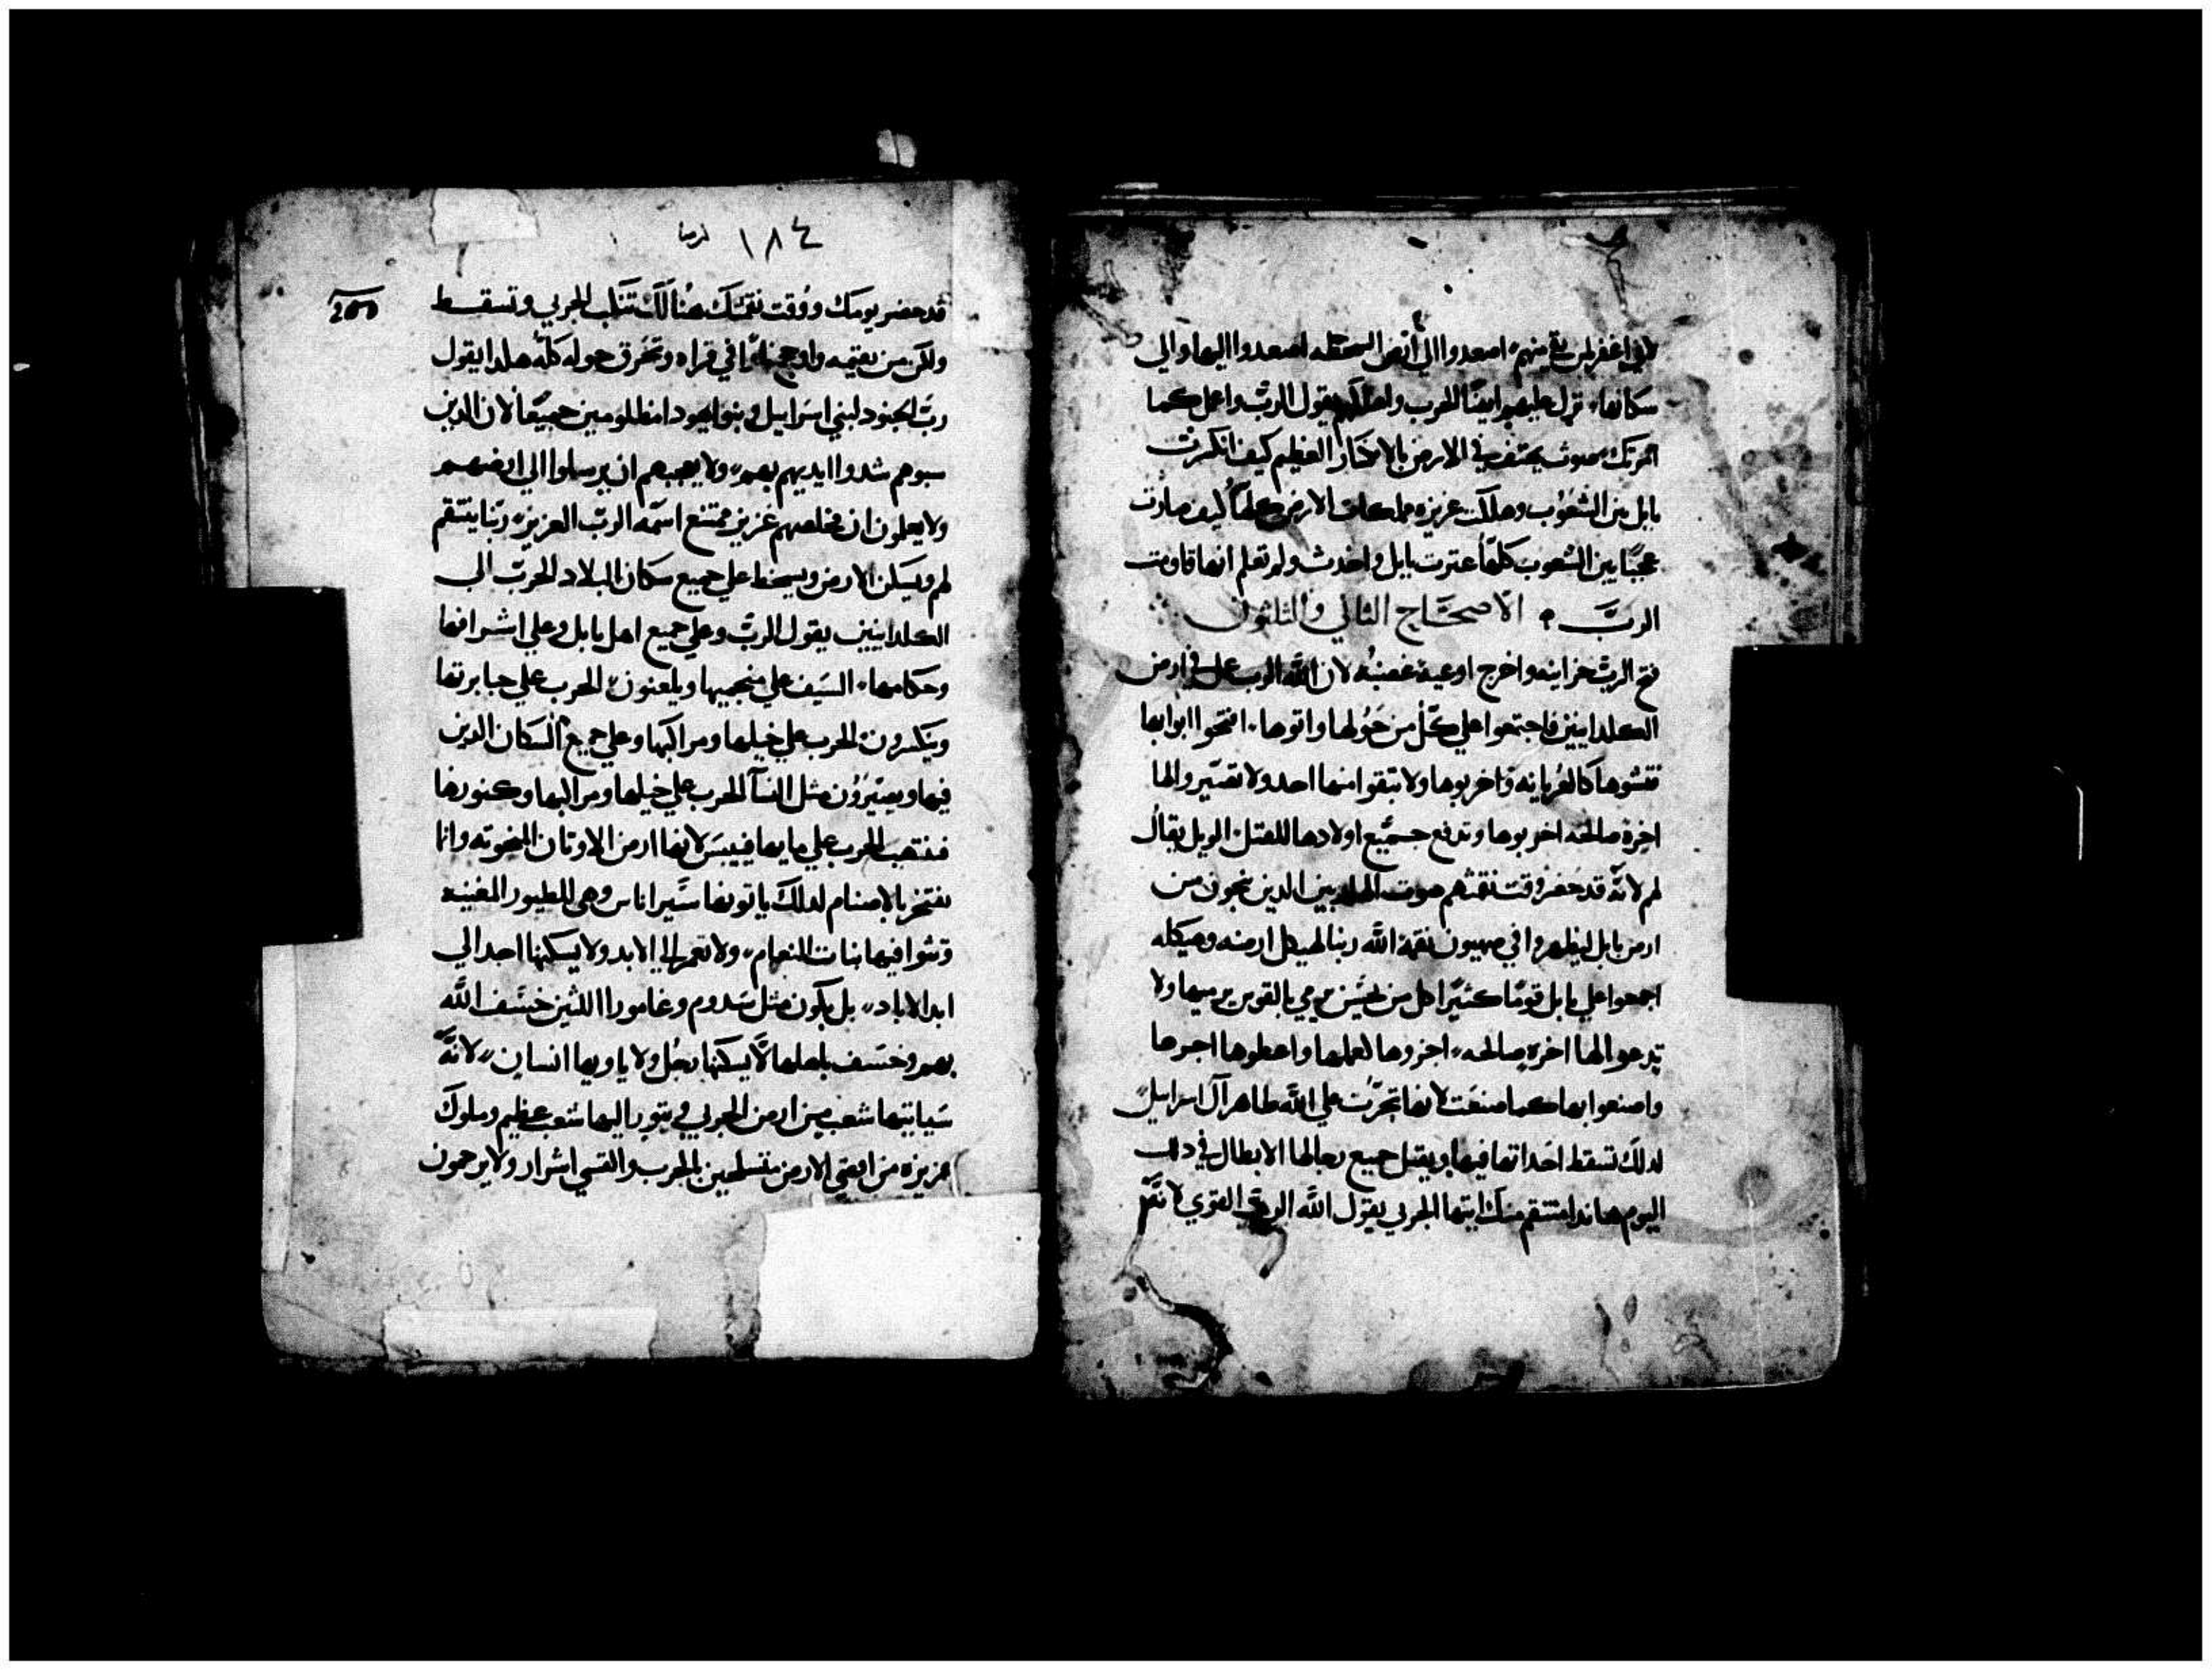 لاني اغفر لمن بقي منهم، اصعدوا الي ارض السخطه اصعدوا اليها والي
سكانها، نزل عليهم ايضًا الحرب واهلكهم يقول الربّ واعمل كما
امرتك صوت يهتف في الارض بالانكسار العظيم كيف انكسرت
بابل من الشعوب وهلكت عزيزه مملكات الارض كلها كيف صارت
عجبًا بين الشعوب كلها عترت بابل واخدت ولم تعلم انها قاومت
الربَّ ، الاصحَاح التاني والتلتون
فتح الربّ خزاينه واخرج اوعية غضبه لان الله الرب علي ارض
الكلدانيين فاجتمعوا علي كل من حولها واتوها، افتحوا ابوابها
فتشوها كالعُريانه واخربوها ولا تبقوا منها احد ولا تصيّروا لها
اخِرة صالحه اخربوها وتدفع جميع اولادها للقتل الويل يقال
لهم لانّه قد حضر وقت نقمتهم صوت الهاربين الدين ينجون من
ارض بابل ليظهروا في صهيون نقمة الله ربنا لهيكل ارضه وهيكله
اجمعوا علي بابل قومًا كثيرًا كل من يحسن يرمي بالقوس يرميها ولا
تدعوا لها اخره صالحه، اجزوها لعملها واعطوها اجرها
واصنعوا بها كما صنعت لانها تجرّت علي الله طاهر آل اسراييل
لدلك تسقط احداثها فيها ويقتل جميع رجالها الابطال في دلك
اليوم هاندا منتقم منك ايتها الجربي يقول الله الرب القوي لانّه
١٨٤ ارميا
قد حضر يومك ووقت نقمتك هُنالك تنكب الجربي وتسقط
ولكن من يقيمه واوجج نارًا في قراه وتحرق حوله كلّه هكدا يقول
ربّ الجنود لبني اسراييل وبنو ايهودا مظلومين جميعًا لان الدين
سبوهم شدوا ايديهم بهم، ولا يعجبهم ان يرسلوا الي ارضهم
ولا يعلمون ان مخلصهم عزيز ممتنع اسمه الربّ العزيز، ربّنا ينتقم
لهم ويسكن الارض ويسخط علي جميع سكان البلاد الحرب الي
الكلدانيين يقول الربّ وعلي جميع اهل بابل وعلي اشرافها
وحكامها، السَيف علي منجميها ويلعنون، الحرب علي جبابرتها
وينكسرون، الحرب علي خيلها ومراكبها وعلي جميع السكان الدين
فيها ويصيّرون مثل النسآ الحرب علي خيلها ومراكبها وكنوزها
فتنتهب الحرب علي مايها فييبَس لانها ارض الاوتان المنحوته وانا
نفتخر بالاصنام لدلك ياتونها سَيراناس وهي للطيور المغنيه
وتتوا فيها بنات النعام، ولا تعمر الي الابد ولا يسكنها احد الي
ابد الاباد، بل يكون مثل سَدوم وغامورا اللتين خسَف الله
بهم وخسَف باهلها لا يسكنها رجُل ولا ياويها انسان، لانَّه
سَياتيها شعب من ارض الجربي ويتور اليها شعب عظيم وملوك
عزيزه من اقصي الارض متسلحين بالحرب والقسي اشرار ولا يرحمون